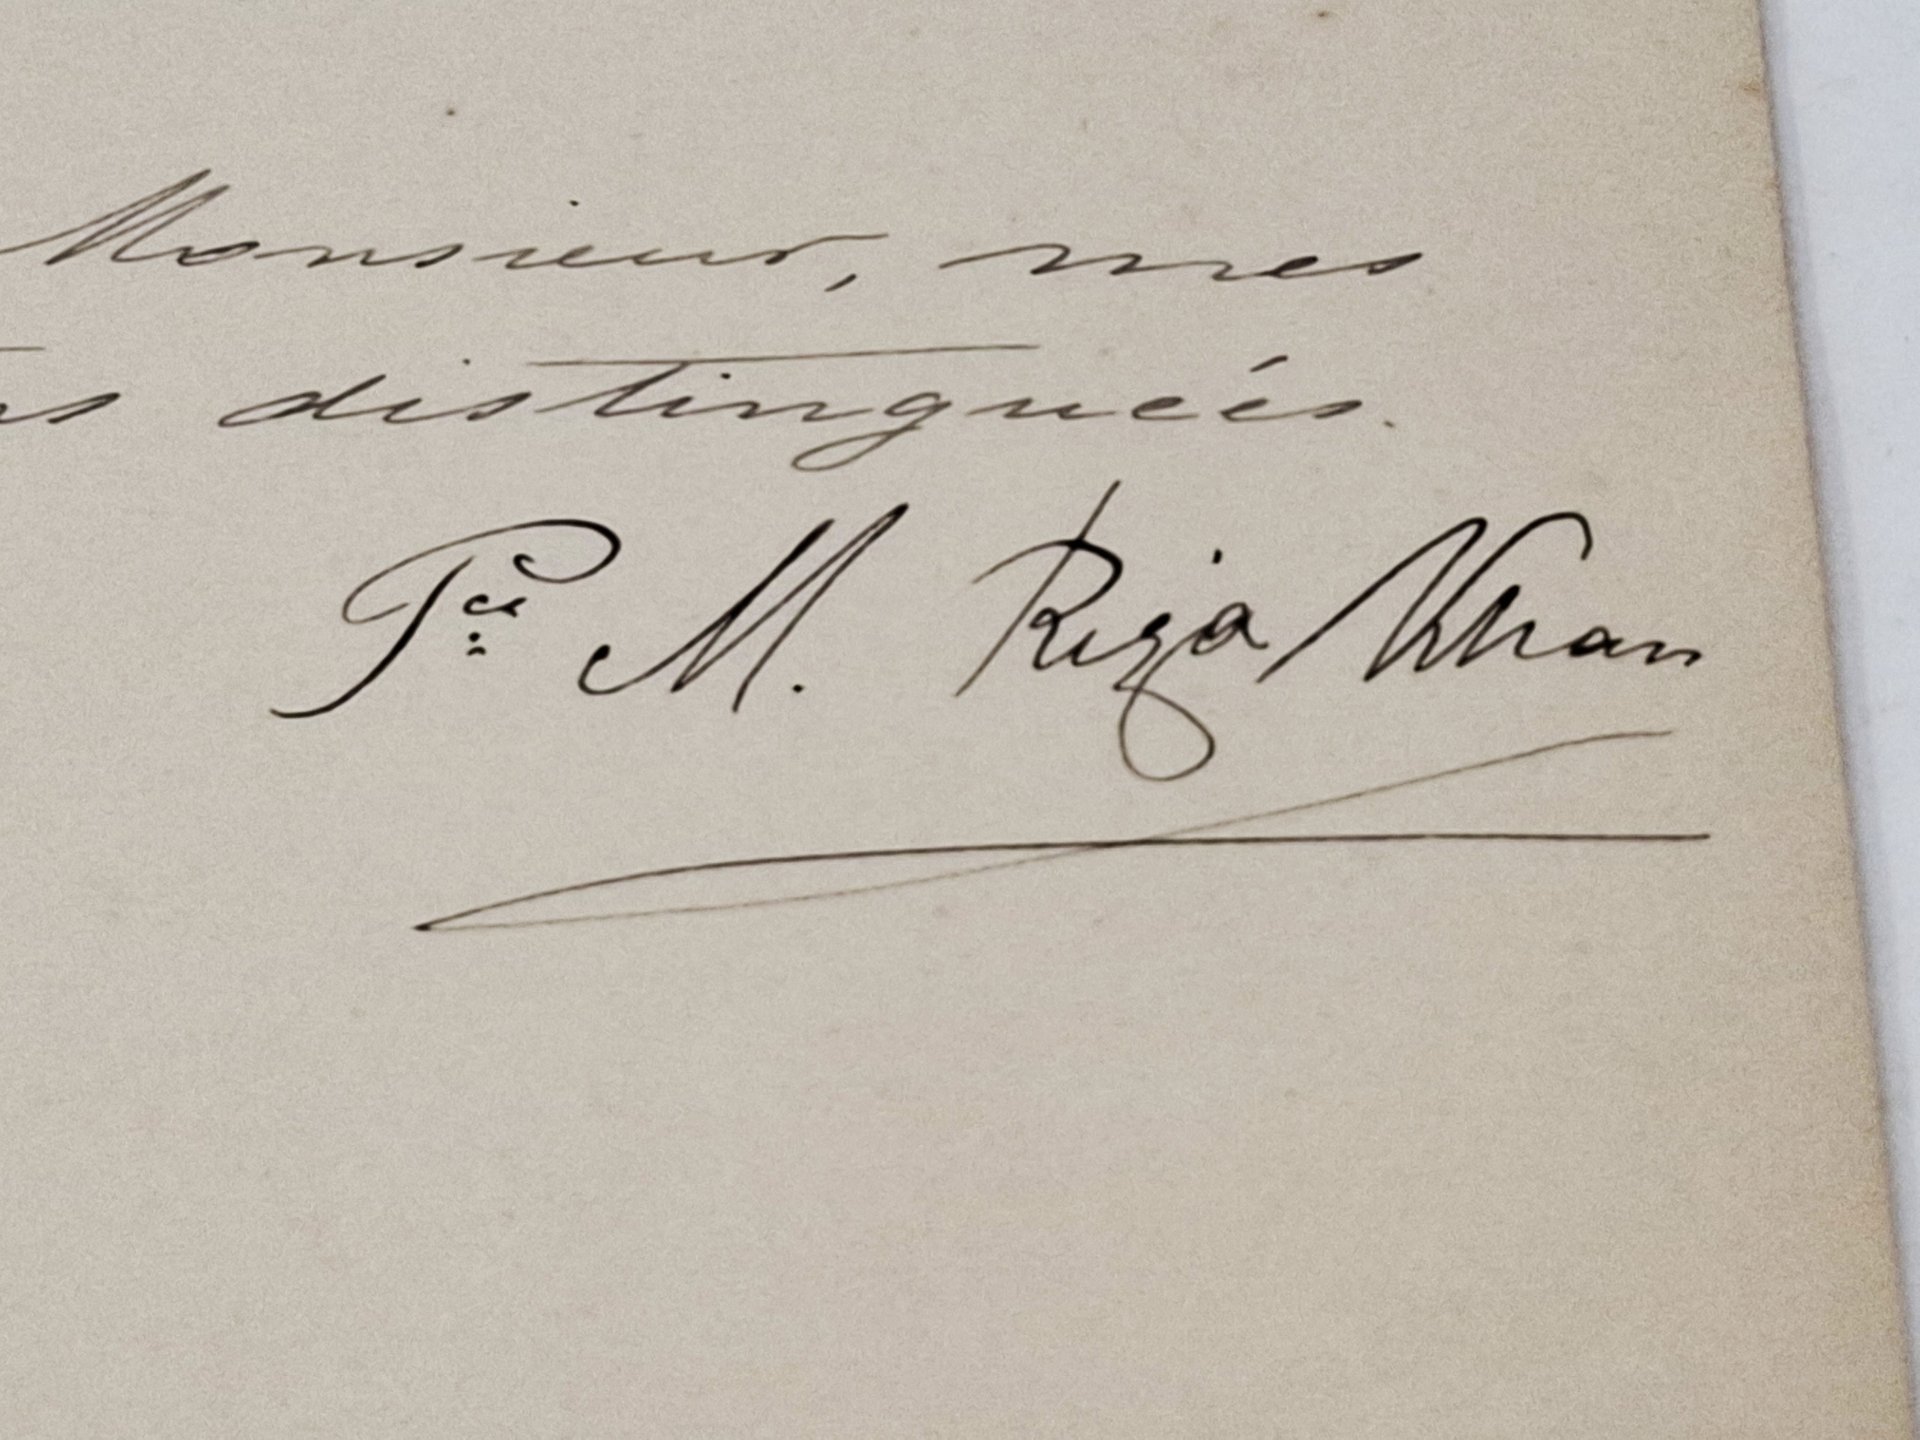 Monsieur, mes
distinguées.
Pce M. Riza Khan